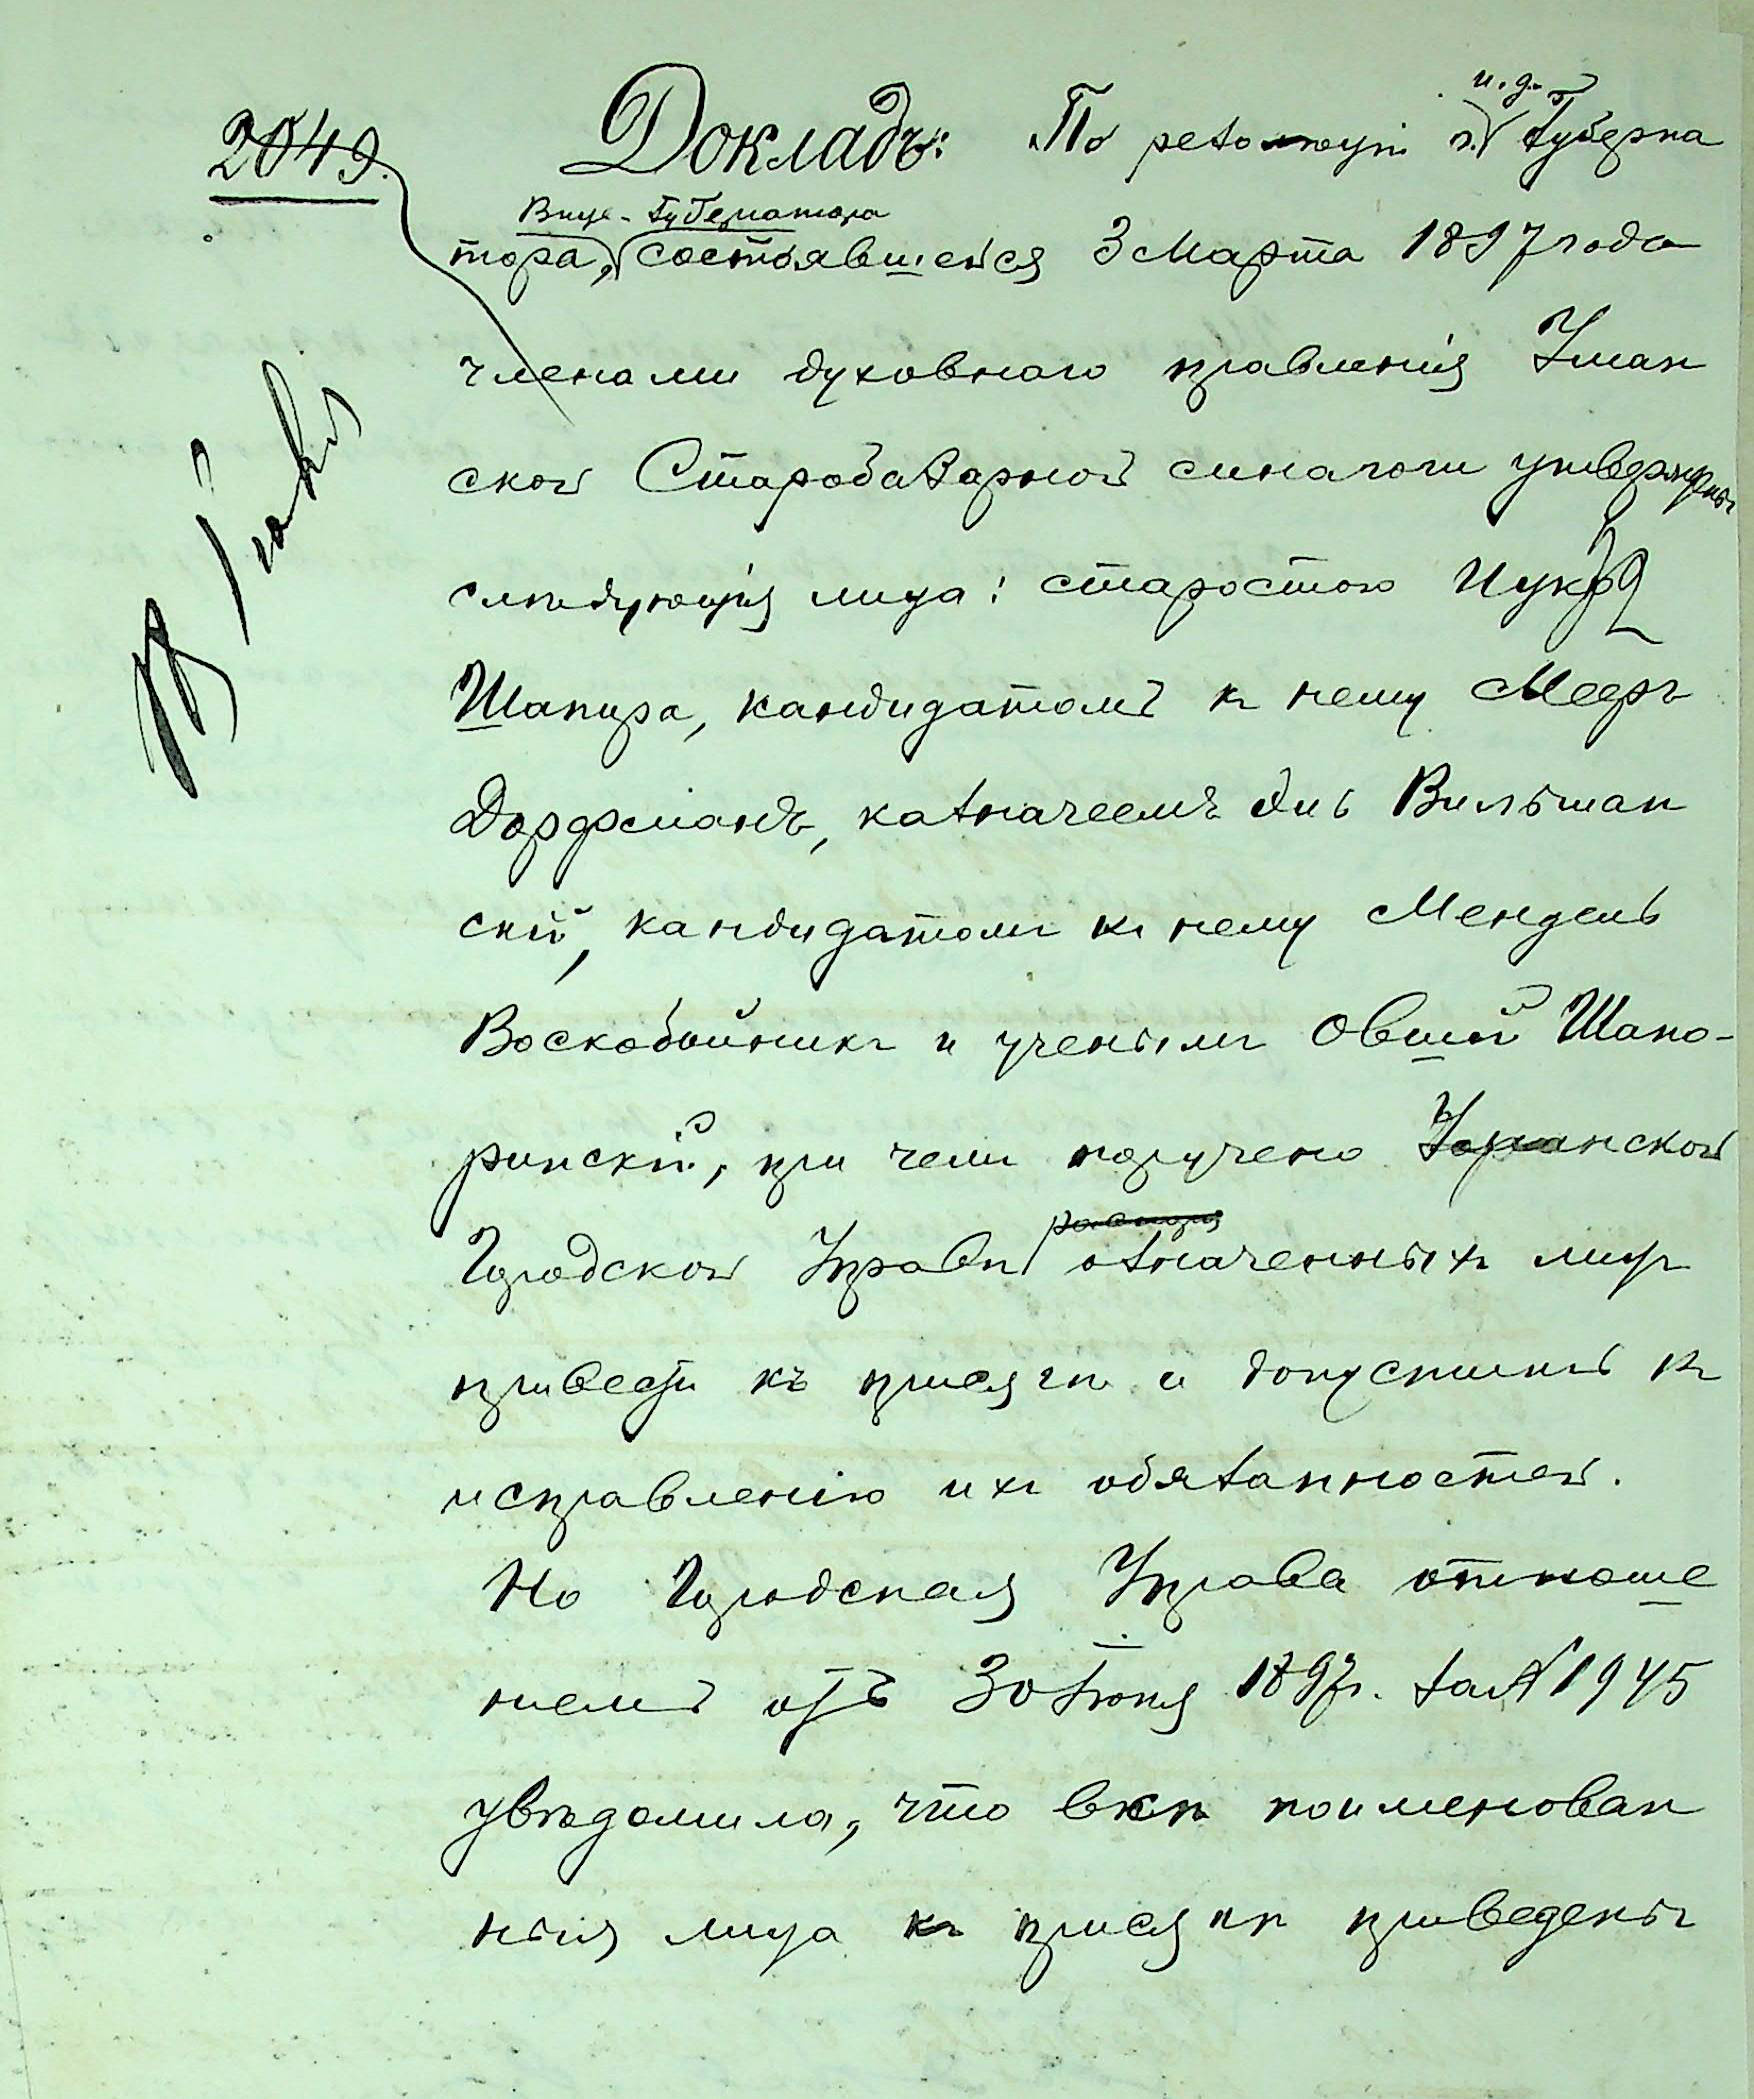 2049.
Докладъ: По резолюціи г. и. д. Губерна
Вице-Губернатора
тора, состоявшейся 3 Марта 1897 года
членами духовнаго правленія Уман
ской Старобазарной синагоги утверждены
слѣдующія лица: старостою Ицко
Шапира, кандидатомъ къ нему Мееръ
Дорфманъ, казначеемъ Элѣ Вильшан
скій, кандидатомъ къ нему Мендель
Воскобойникъ и ученымъ Овшій Шапо-
ринскій, при чемъ поручено Уманской
Городской Управѣ означенныхъ лицъ
привести къ присягѣ и допустить къ
исправленію ихъ обязанностей.
Но Городская Управа отноше
ніемъ отъ 30 Іюня 1897г. за № 1945
увѣдомила, что всѣ поименован
ныя лица къ присягѣ приведены